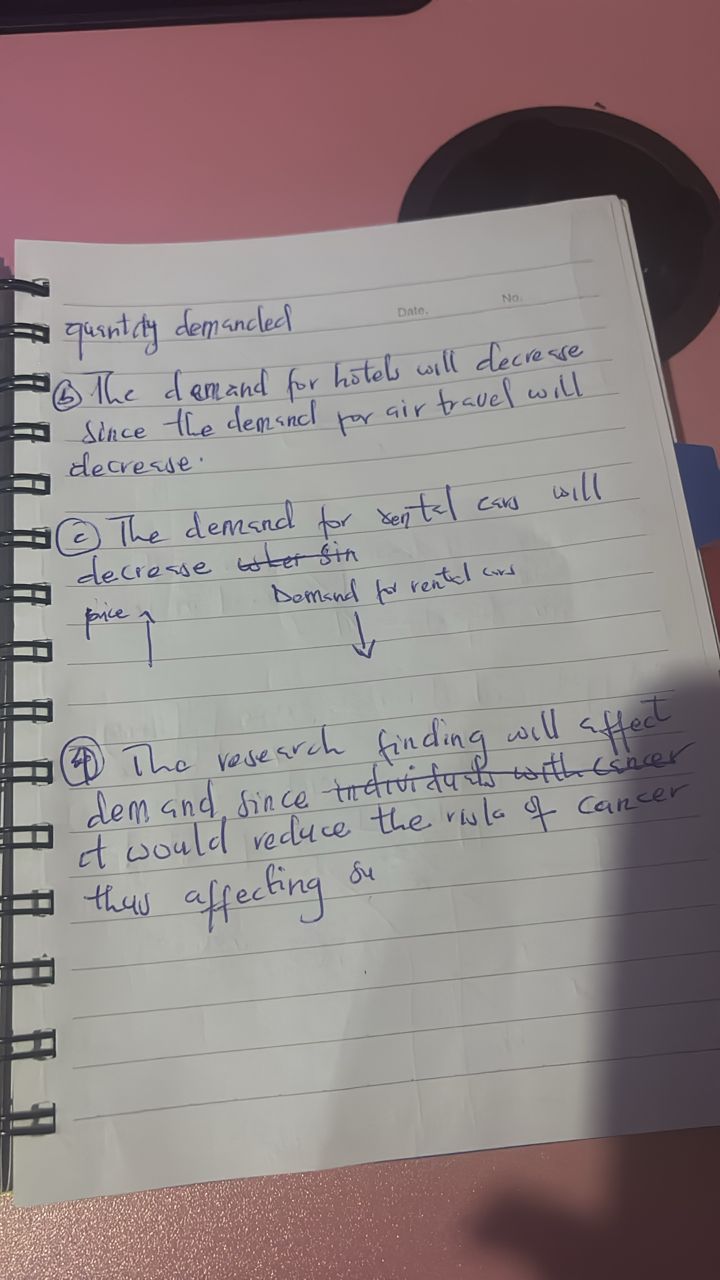 Date.
No.
quantity demanded
ⓑ The demand for hotels will decrease
since the demand for air travel will
decrease.
ⓒ The demand for rental cars will
decrease
Demand for rental cars
price ↑
↓
④ The research finding will affect
demand, since individuals with cancer
it would reduce the risk of cancer
thus affecting su